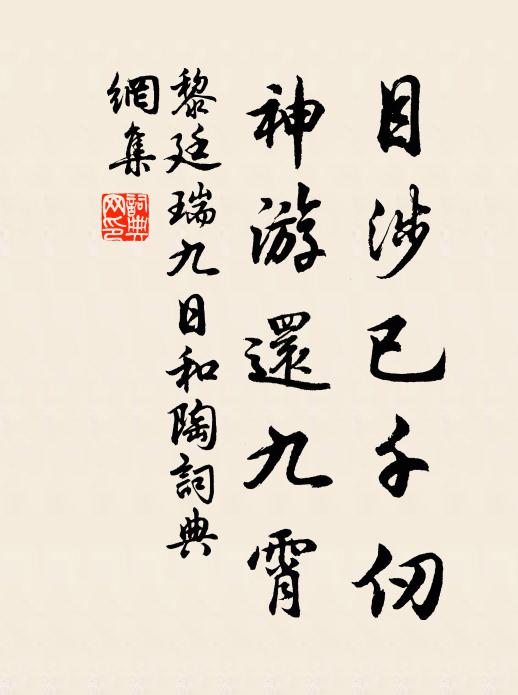 目涉已千仞
神游還九霄
黎廷瑞九日和陶詞典
網集
詞典
网印